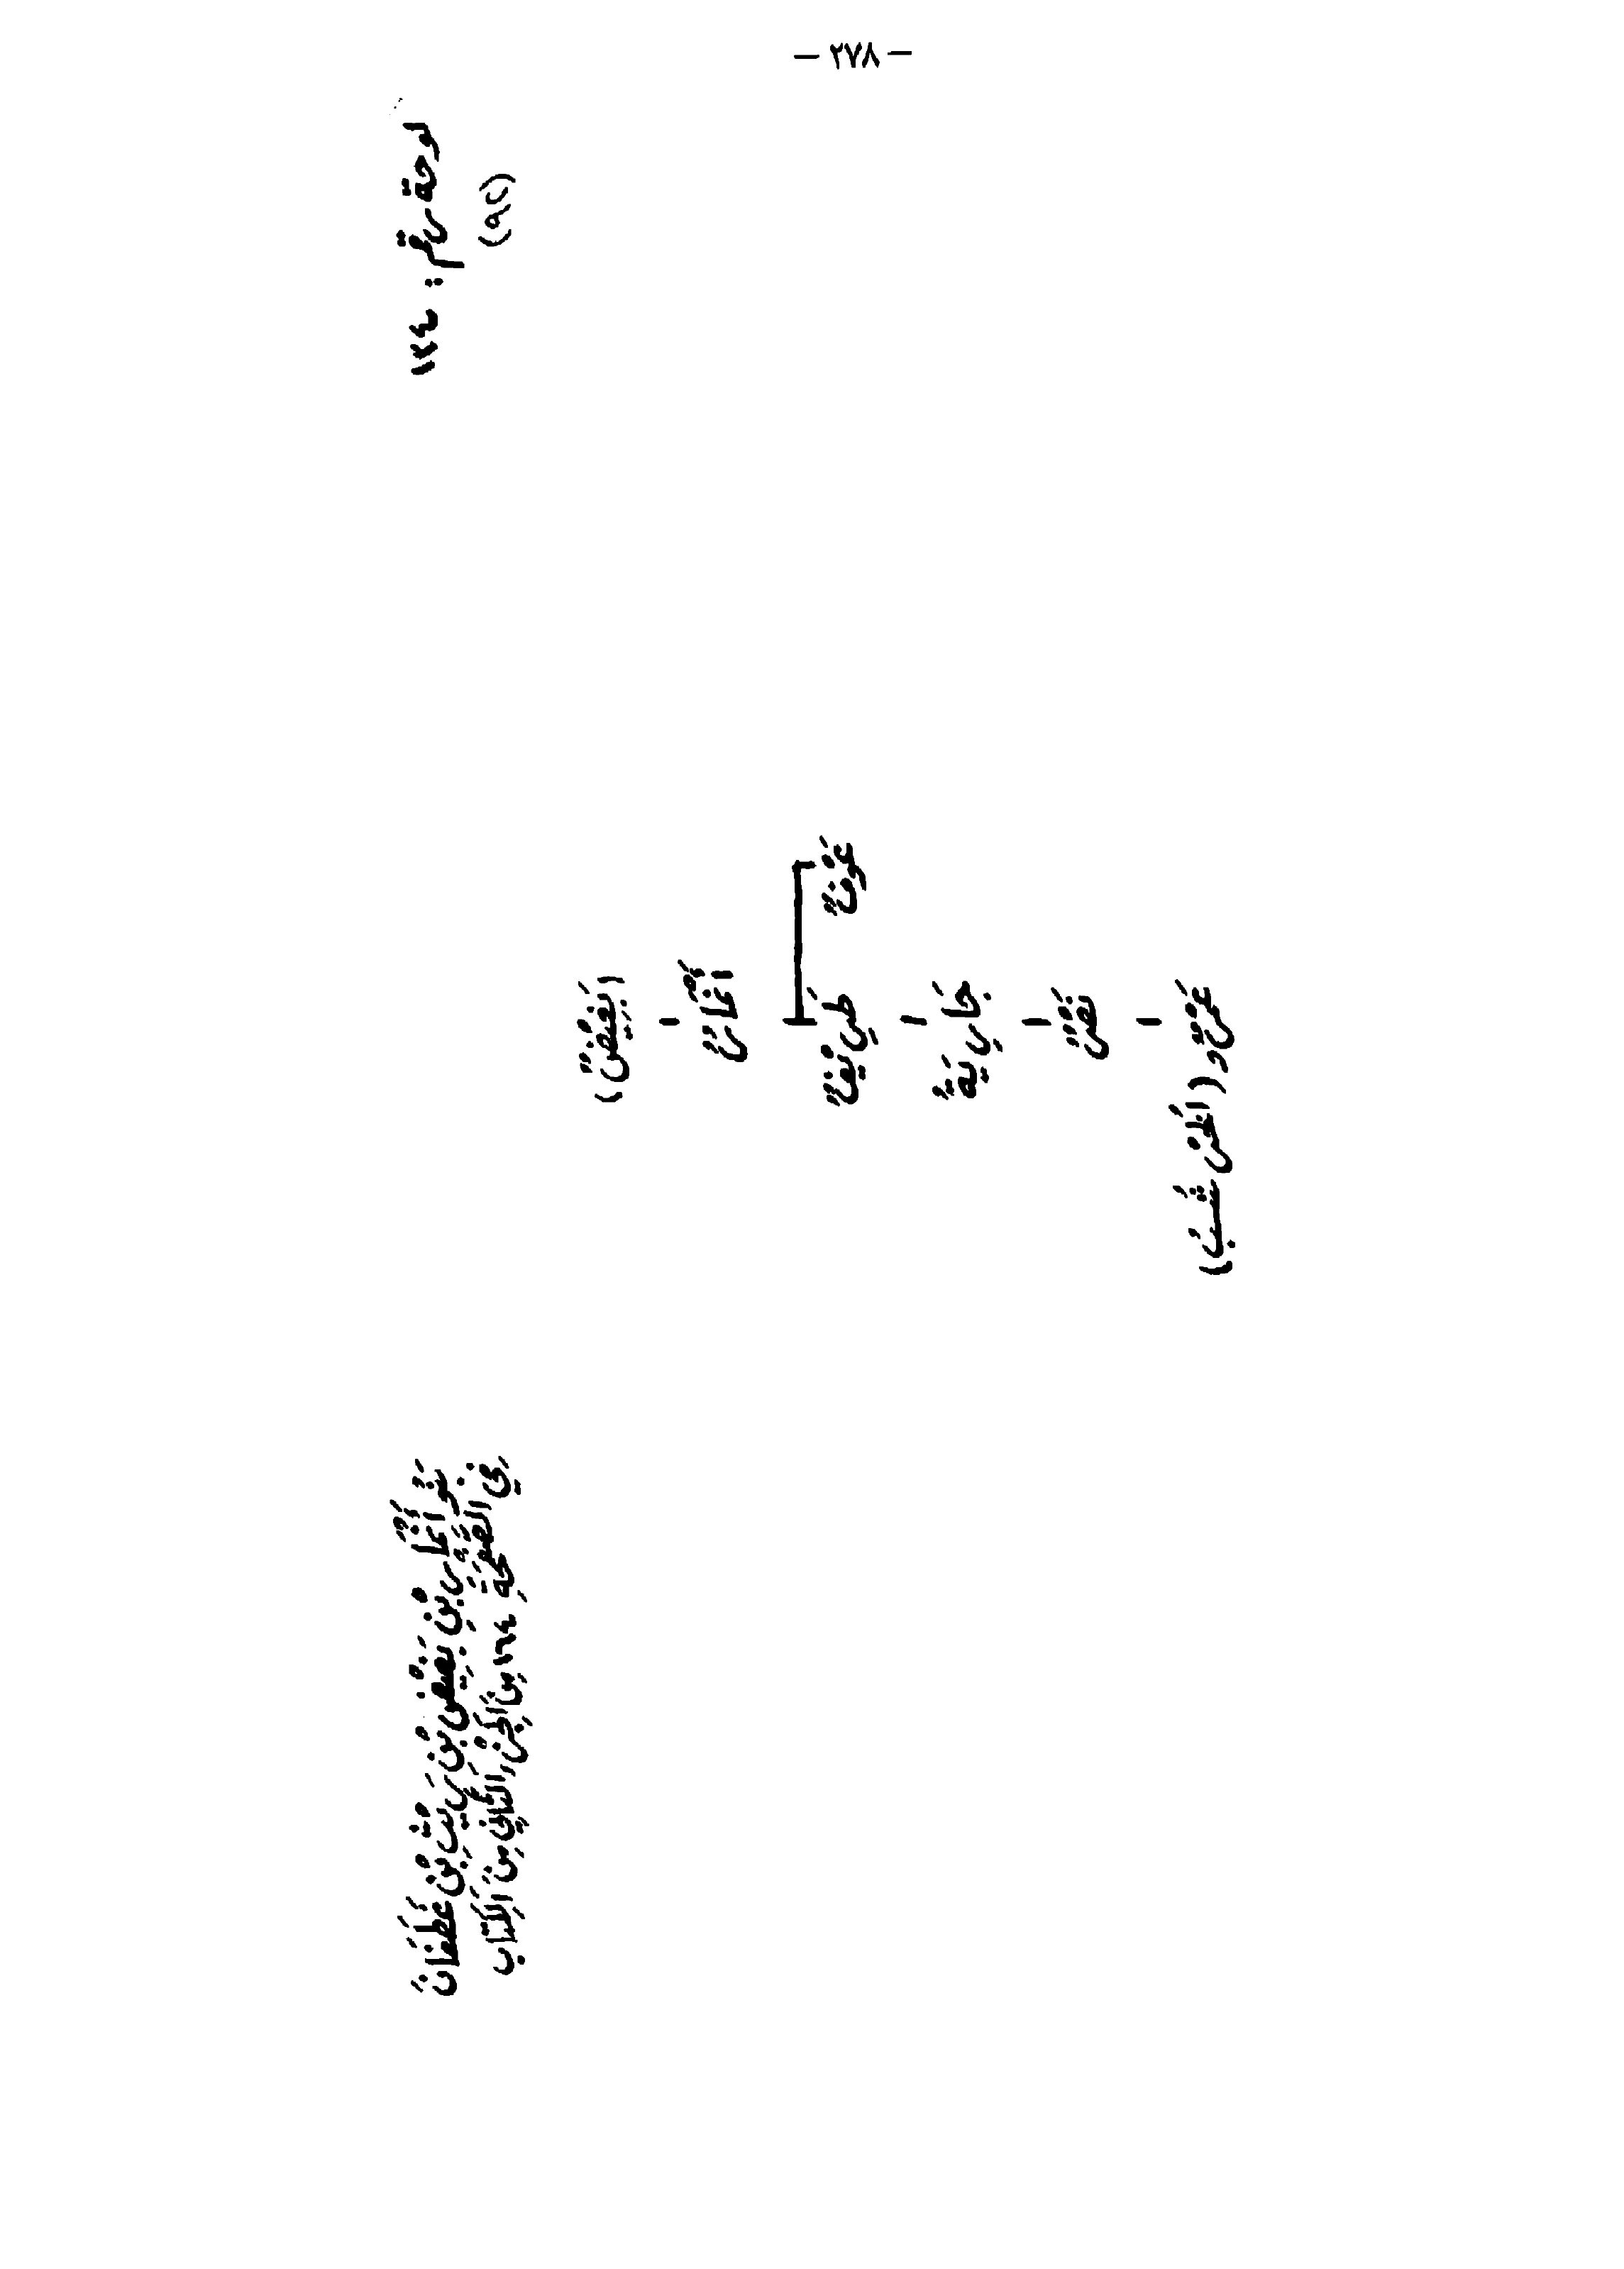 – ٢٧٨ –
لوحة رقم :
(٩٢)
بَنُو أَنْمَارِ بْنِ بَغِيْضِ بْنِ رَيْثِ بْنِ غَطَفَانَ
فِي الصَّفْحَةِ مِنَ الْجُزْءِ الثَّانِي مِنَ الْكِتَابِ
(بَغِيْضٌ)
أَنْمَارٌ
عَوْفٌ طَرِيْفٌ
جَارِيَةُ
نَصْرٌ
عَمْرٌو (الخُرْشُبُ)